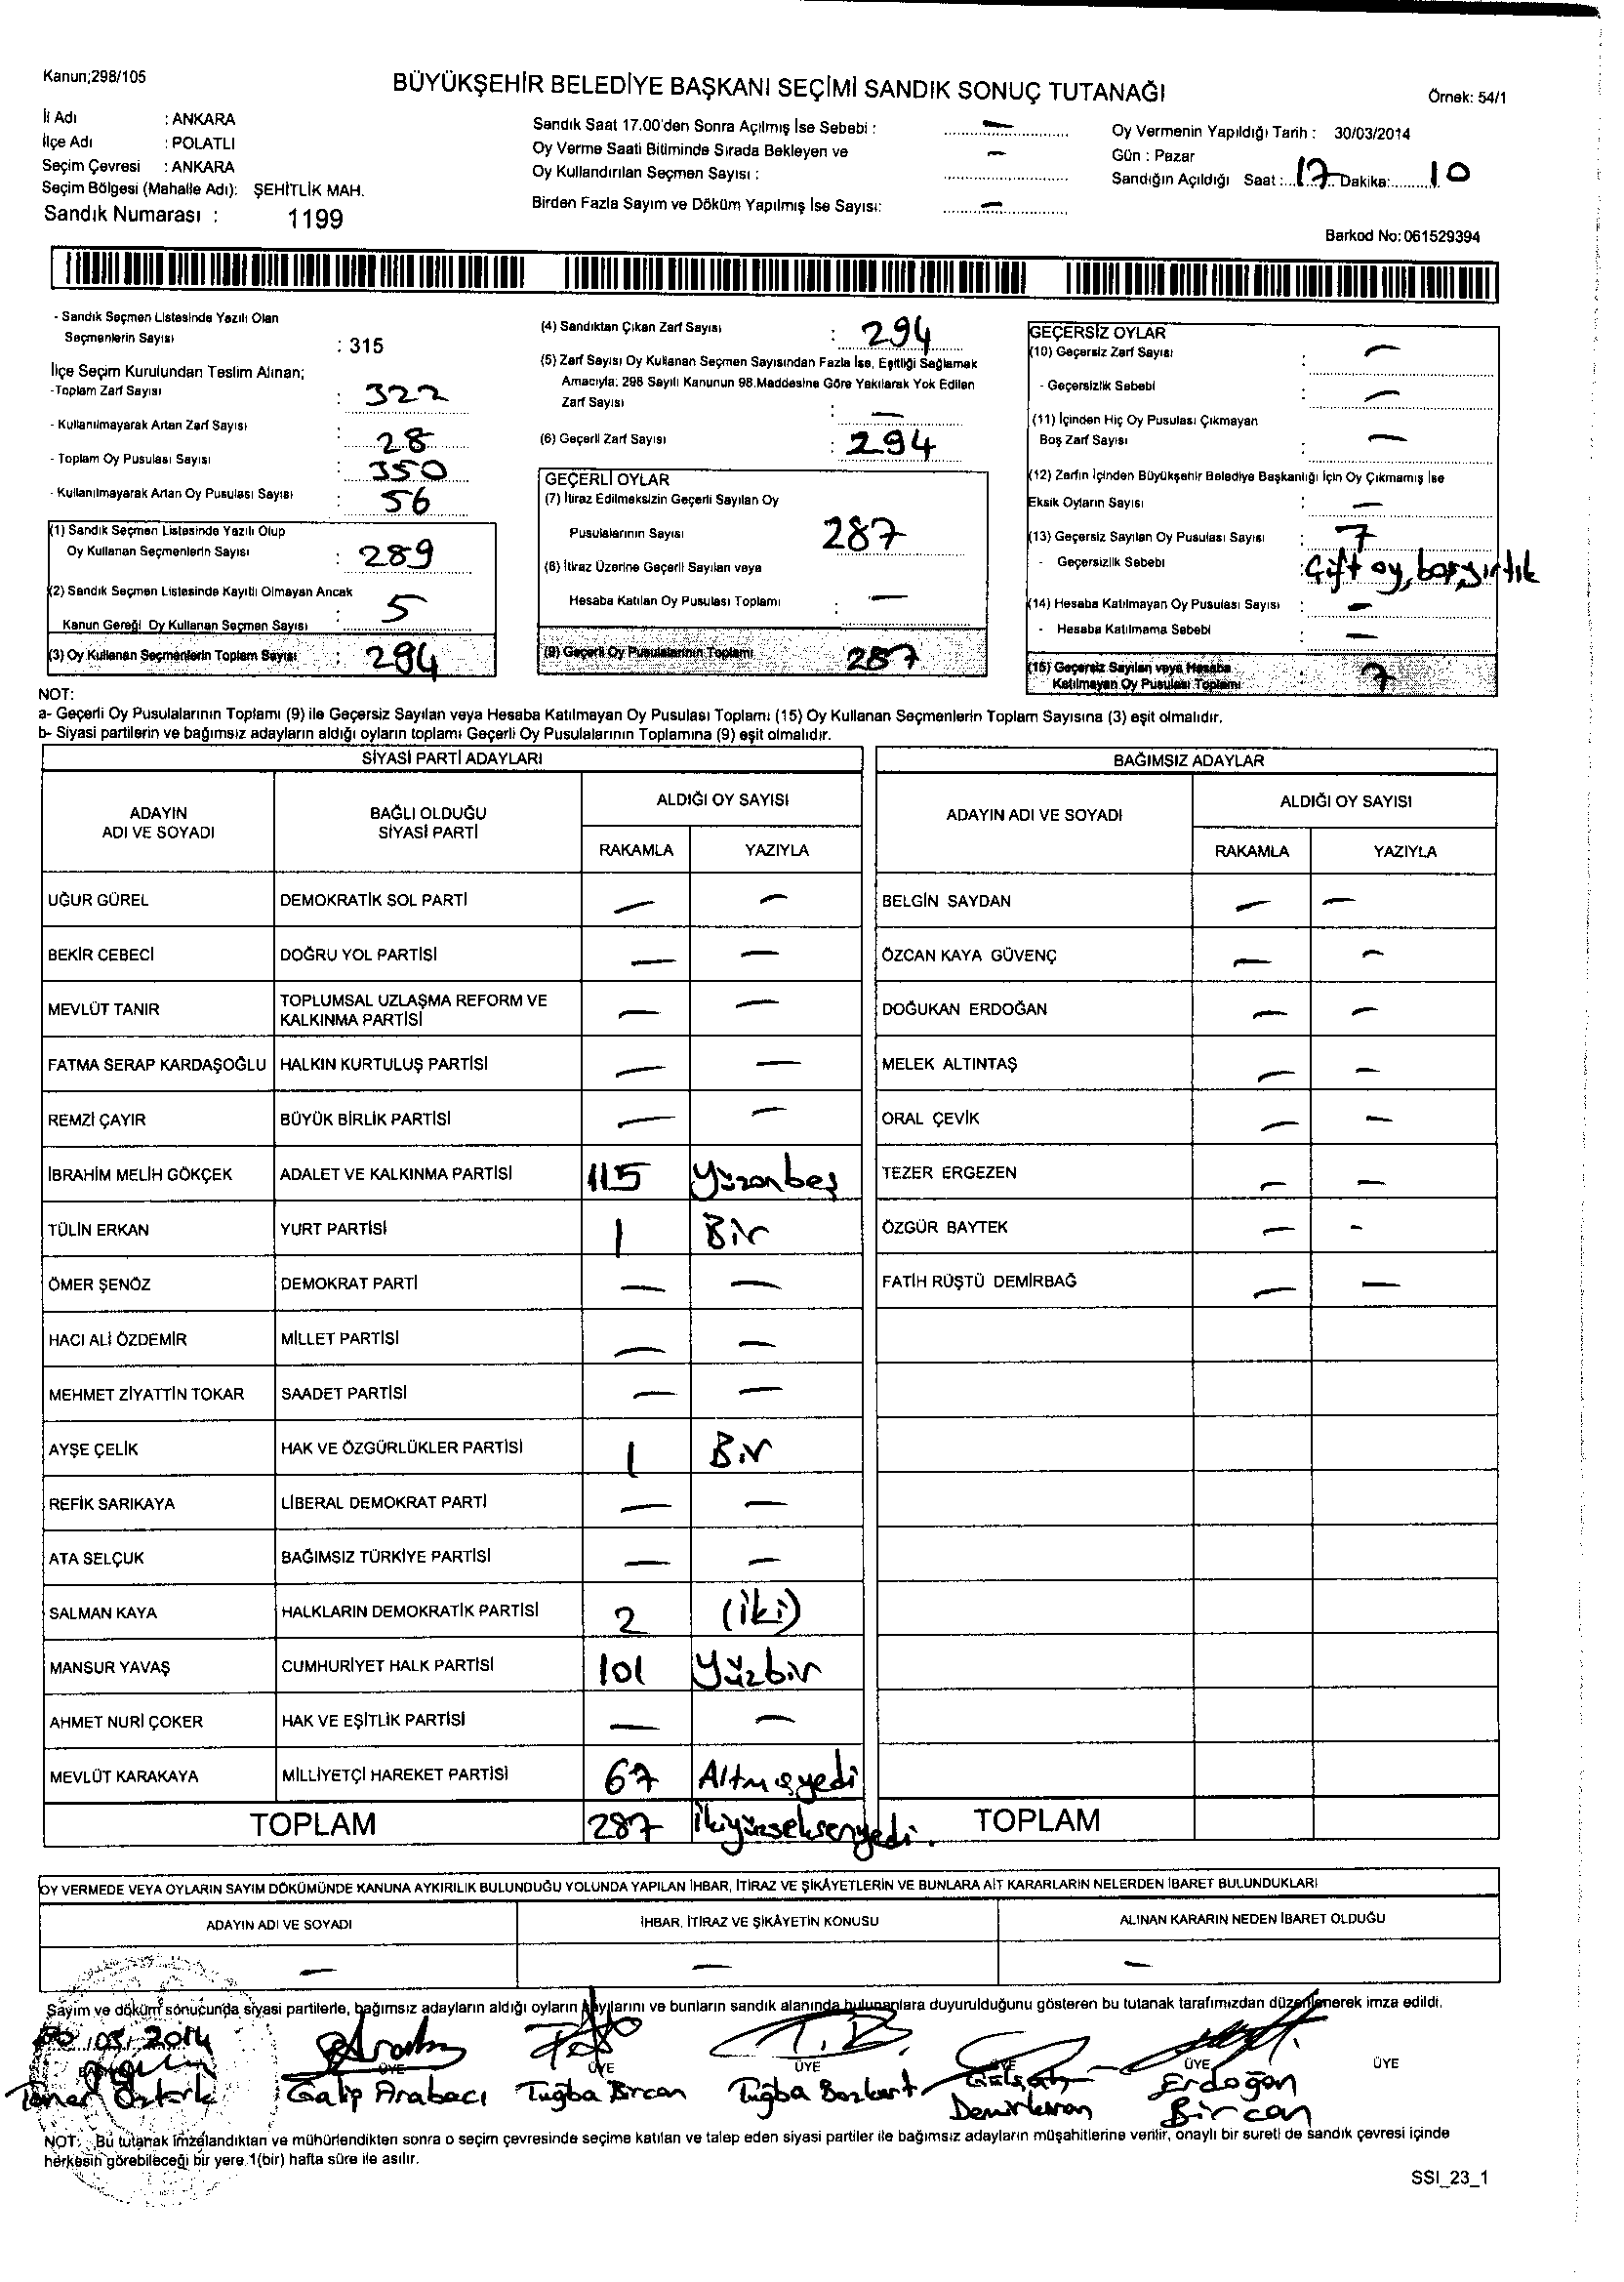 Kanun;298/105
BÜYÜKŞEHİR BELEDİYE BAŞKANI SEÇİMİ SANDIK SONUÇ TUTANAĞI
Örnek: 54/1
İl Adı : ANKARA
İlçe Adı : POLATLI
Seçim Çevresi : ANKARA
Seçim Bölgesi (Mahalle Adı): ŞEHİTLİK MAH.
Sandık Numarası : 1199
Sandık Saat 17.00'den Sonra Açılmış İse Sebebi : —
Oy Verme Saati Bitiminde Sırada Bekleyen ve
Oy Kullandırılan Seçmen Sayısı : —
Birden Fazla Sayım ve Döküm Yapılmış İse Sayısı: —
Oy Vermenin Yapıldığı Tarih : 30/03/2014
Gün : Pazar
Sandığın Açıldığı Saat : 17 Dakika: 10
Barkod No: 061529394
- Sandık Seçmen Listesinde Yazılı Olan
Seçmenlerin Sayısı : 315
İlçe Seçim Kurulundan Teslim Alınan;
-Toplam Zarf Sayısı : 322
- Kullanılmayarak Artan Zarf Sayısı : 28
- Toplam Oy Pusulası Sayısı : 350
- Kullanılmayarak Artan Oy Pusulası Sayısı : 56
(1) Sandık Seçmen Listesinde Yazılı Olup
Oy Kullanan Seçmenlerin Sayısı : 289
(2) Sandık Seçmen Listesinde Kayıtlı Olmayan Ancak
Kanun Gereği Oy Kullanan Seçmen Sayısı : 5
(3) Oy Kullanan Seçmenlerin Toplam Sayısı : 294
(4) Sandıktan Çıkan Zarf Sayısı : 294
(5) Zarf Sayısı Oy Kullanan Seçmen Sayısından Fazla İse, Eşitliği Sağlamak
Amacıyla; 298 Sayılı Kanunun 98.Maddesine Göre Yakılarak Yok Edilen
Zarf Sayısı : —
(6) Geçerli Zarf Sayısı : 294
GEÇERLİ OYLAR
(7) İtiraz Edilmeksizin Geçerli Sayılan Oy
Pusulalarının Sayısı 287
(8) İtiraz Üzerine Geçerli Sayılan veya
Hesaba Katılan Oy Pusulası Toplamı : —
(9) Geçerli Oy Pusulalarının Toplamı 287
GEÇERSİZ OYLAR
(10) Geçersiz Zarf Sayısı : —
- Geçersizlik Sebebi : —
(11) İçinden Hiç Oy Pusulası Çıkmayan
Boş Zarf Sayısı : —
(12) Zarfın İçinden Büyükşehir Belediye Başkanlığı İçin Oy Çıkmamış İse
Eksik Oyların Sayısı : —
(13) Geçersiz Sayılan Oy Pusulası Sayısı : 7
- Geçersizlik Sebebi : Çift oy, boş, yırtık
(14) Hesaba Katılmayan Oy Pusulası Sayısı : —
- Hesaba Katılmama Sebebi : —
(15) Geçersiz Sayılan veya Hesaba
Katılmayan Oy Pusulası Toplamı : 7
NOT:
a- Geçerli Oy Pusulalarının Toplamı (9) ile Geçersiz Sayılan veya Hesaba Katılmayan Oy Pusulası Toplamı (15) Oy Kullanan Seçmenlerin Toplam Sayısına (3) eşit olmalıdır.
b- Siyasi partilerin ve bağımsız adayların aldığı oyların toplamı Geçerli Oy Pusulalarının Toplamına (9) eşit olmalıdır.
SİYASİ PARTİ ADAYLARI
ADAYIN ADI VE SOYADI BAĞLI OLDUĞU SİYASİ PARTİ ALDIĞI OY SAYISI
RAKAMLA YAZIYLA
UĞUR GÜREL DEMOKRATİK SOL PARTİ — —
BEKİR CEBECİ DOĞRU YOL PARTİSİ — —
MEVLÜT TANIR TOPLUMSAL UZLAŞMA REFORM VE KALKINMA PARTİSİ — —
FATMA SERAP KARDAŞOĞLU HALKIN KURTULUŞ PARTİSİ — —
REMZİ ÇAYIR BÜYÜK BİRLİK PARTİSİ — —
İBRAHİM MELİH GÖKÇEK ADALET VE KALKINMA PARTİSİ 115 Yüzonbeş
TÜLİN ERKAN YURT PARTİSİ 1 Bir
ÖMER ŞENÖZ DEMOKRAT PARTİ — —
HACI ALİ ÖZDEMİR MİLLET PARTİSİ — —
MEHMET ZİYATTİN TOKAR SAADET PARTİSİ — —
AYŞE ÇELİK HAK VE ÖZGÜRLÜKLER PARTİSİ 1 Bir
REFİK SARIKAYA LİBERAL DEMOKRAT PARTİ — —
ATA SELÇUK BAĞIMSIZ TÜRKİYE PARTİSİ — —
SALMAN KAYA HALKLARIN DEMOKRATİK PARTİSİ 2 (İki)
MANSUR YAVAŞ CUMHURİYET HALK PARTİSİ 101 Yüzbir
AHMET NURİ ÇOKER HAK VE EŞİTLİK PARTİSİ — —
MEVLÜT KARAKAYA MİLLİYETÇİ HAREKET PARTİSİ 67 Altmışyedi
TOPLAM 287 İkiyüzseksenyedi.
BAĞIMSIZ ADAYLAR
ADAYIN ADI VE SOYADI ALDIĞI OY SAYISI
RAKAMLA YAZIYLA
BELGİN SAYDAN — —
ÖZCAN KAYA GÜVENÇ — —
DOĞUKAN ERDOĞAN — —
MELEK ALTINTAŞ — —
ORAL ÇEVİK — —
TEZER ERGEZEN — —
ÖZGÜR BAYTEK — —
FATİH RÜŞTÜ DEMİRBAĞ — —
TOPLAM
OY VERMEDE VEYA OYLARIN SAYIM DÖKÜMÜNDE KANUNA AYKIRILIK BULUNDUĞU YOLUNDA YAPILAN İHBAR, İTİRAZ VE ŞİKÂYETLERİN VE BUNLARA AİT KARARLARIN NELERDEN İBARET BULUNDUKLARI
ADAYIN ADI VE SOYADI İHBAR, İTİRAZ VE ŞİKÂYETİN KONUSU ALINAN KARARIN NEDEN İBARET OLDUĞU
— — —
Sayım ve döküm sonucunda siyasi partilerle, bağımsız adayların aldığı oyların sayılarını ve bunların sandık alanında bulunanlara duyurulduğunu gösteren bu tutanak tarafımızdan düzenlenerek imza edildi.
30.03.2014
ÜYE ÜYE ÜYE ÜYE ÜYE ÜYE
Taner Öztürk Galip Arabacı Tuğba Bircan Tuğba Bozkurt Demirkıran Erdoğan Bircan
NOT: Bu tutanak imzalandıktan ve mühürlendikten sonra o seçim çevresinde seçime katılan ve talep eden siyasi partiler ile bağımsız adayların müşahitlerine verilir, onaylı bir sureti de sandık çevresi içinde
herkesin görebileceği bir yere 1(bir) hafta süre ile asılır.
SSI_23_1